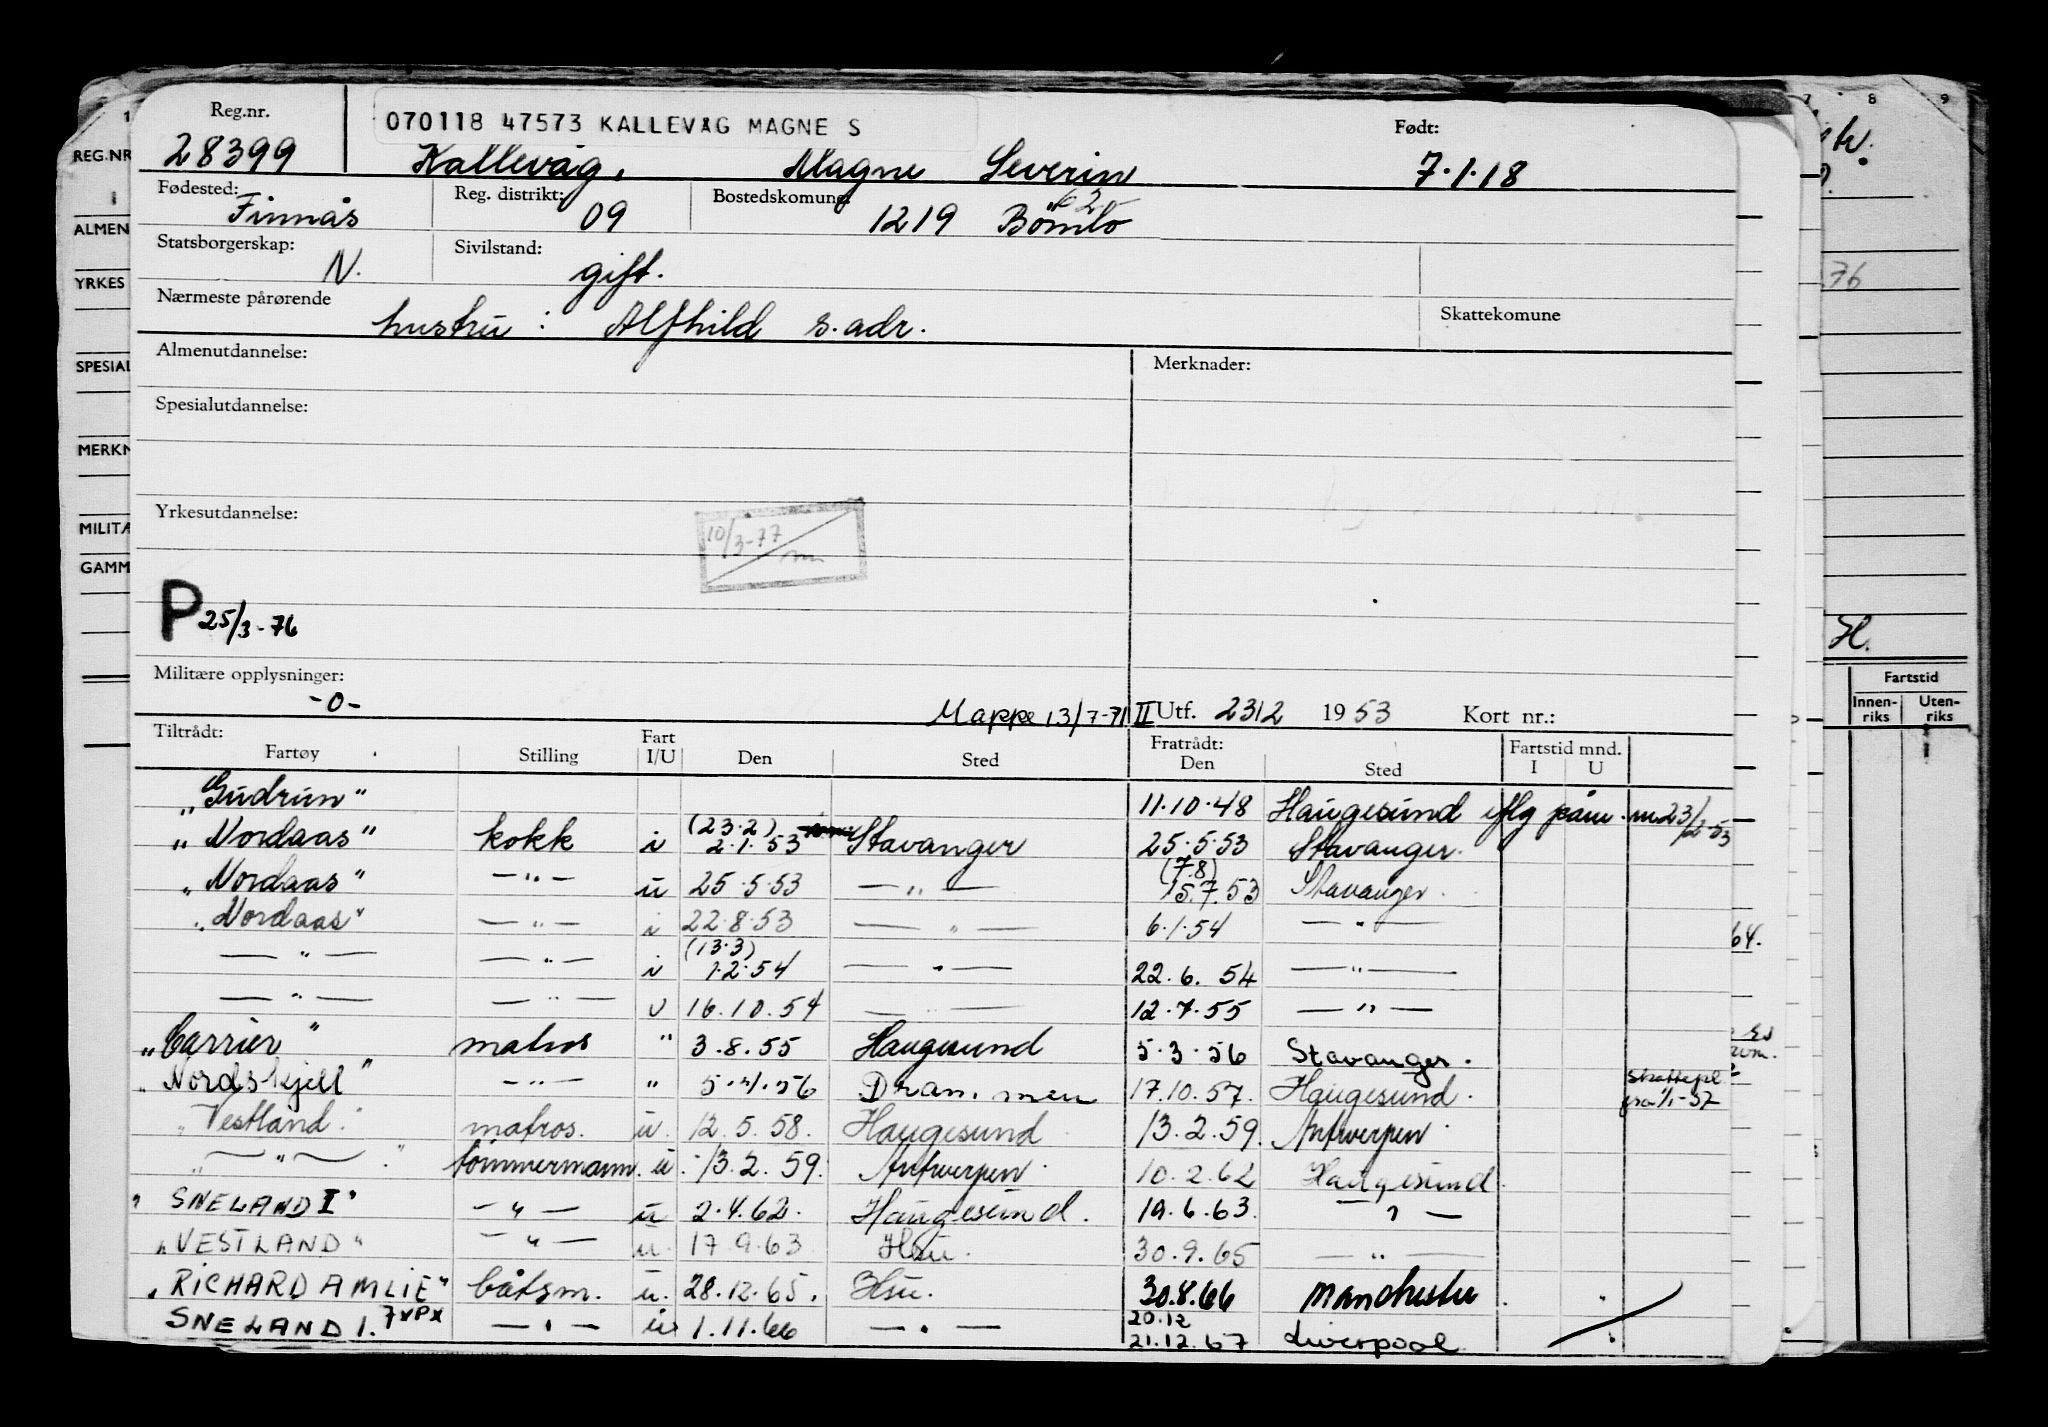 Reg.nr. 28399
070118 47573 KALLEVÅG MAGNE S
Kallevåg, Magne Severin
Født: 7.1.18
Fødested: Finnås
Reg. distrikt: 09
Bostedskomune: 1219 Bömlo
Statsborgerskap: N.
Sivilstand: gift.
Nærmeste pårørende hustru : Alfhild s.adr.
Skattekomune
Almenutdannelse:
Merknader:
Spesialutdannelse:
Yrkesutdannelse:
10/3-77
P 25/3-76
Militære opplysninger: -0-
Mappe 13/7-71 II Utf. 23/2 1953 Kort nr.:
Tiltrådt: Fratrådt:
Fartøy Stilling Fart I/U Den Sted Den Sted Fartstid mnd. I U
"Gudrun" 11.10.48 Haugesund iflg påm. m 23/2-53
"Nordaas" kokk i (23.2) 2.1.53 Stavanger 25.5.53 Stavanger.
"Nordaas" —"— u 25.5.53 —"— (7.8) 15.7.53 Stavanger.
"Nordaas" —"— i 22.8.53 —"— 6.1.54 —"—
—"— —"— i (13.3) 1.2.54 —"— 22.6.54 —"—
—"— —"— u 16.10.54 —"— 12.7.55 —"—
"Carrier" matros " 3.8.55 Haugesund 5.3.56 Stavanger.
"Nordskjell" —"— " 5.4.56 Drammen 17.10.57. Haugesund. Skattepl fra 1/1-57
"Vestland." matros. u. 12.5.58. Haugesund 13.2.59. Antwerpen
"—"—" tömmermann. u. 13.2.59. Antwerpen 10.2.62 Haugesund.
"SNELAND I" —"— u 2.4.62. Haugesund. 19.6.63. —"—
"VESTLAND" —"— u. 17.9.63 Hsu. 30.9.65 —"—
"RICHARD AMLIE" båtsm. u. 28.12.65. Hsu. 30.8.66 Manchester
SNELAND I. 7xPx —"— u 1.11.66 —"— 20.12 21.12.67 Liverpool
REG.NR
ALMEN
YRKES
SPESIAL
MERKN
MILITÆ
GAMM
7 8 9
76
H.
Fartstid
Innen-riks Uten-riks
64.